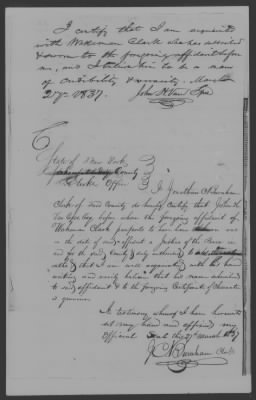 I certify that I am acquainted
with Wakeman Clark who has subscribed
& sworn to the foregoing affidavit before
me, and I believe him to be a man
of credibility & veracity. March
27th 1837.
State of New York
County
Clerks Office
I Jonathan C Burnham
Clerk of said County do hereby certify that John H
Esq. before whom the foregoing affidavit of
Wakeman Clark purports to have been
on the date of said affidavit a Justice of the Peace in
and for the said County & duly authorized to
oaths & that I am well acquainted with his hand
writing and verily believe that his name
to said affidavit & to the foregoing Certificate of Character
is genuine
In testimony whereof I have hereunto
set my hand and affixed my
Official Seal this 27th March 1837
J C Burnham Clerk